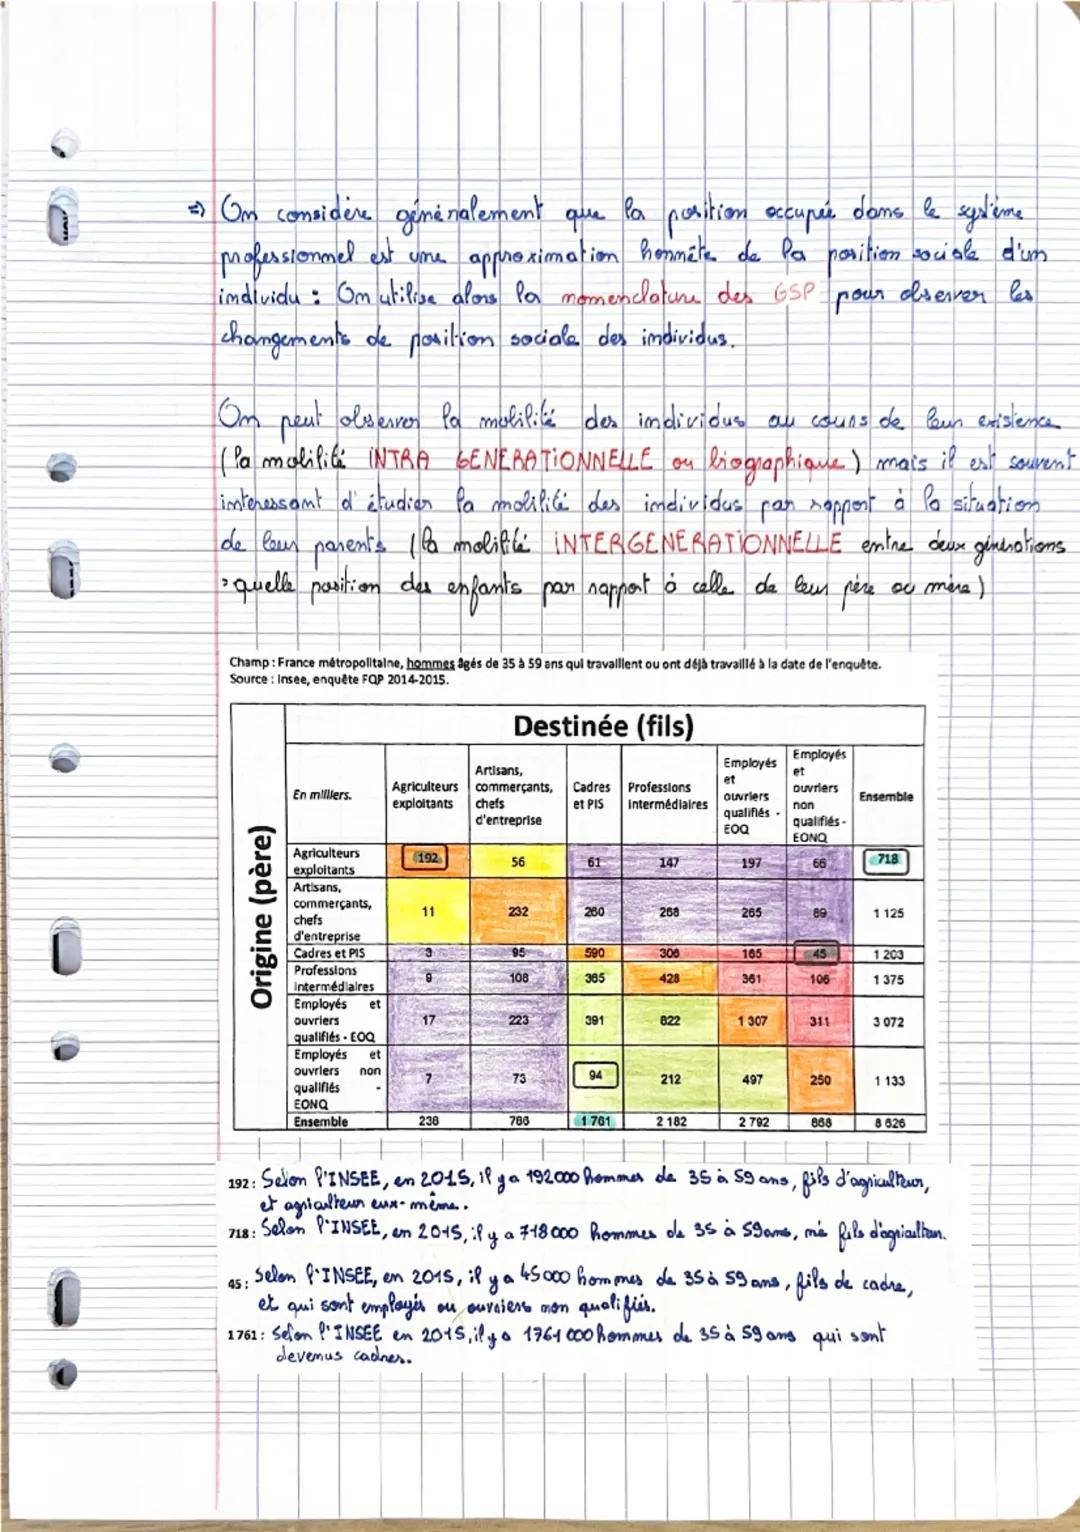 ⇒ On considère généralement que la position occupée dans le système
professionnel est une approximation honnête de la position sociale d'un
individu : On utilise alors la nomenclature des GSP pour observer les
changements de position sociale des individus.
On peut observer la mobilité des individus au cours de leur existence
(la mobilité INTRA GENERATIONNELLE ou biographique) mais il est souvent
interessant d'étudier la mobilité des individus par rapport à la situation
de leurs parents (la mobilité INTERGENERATIONNELLE entre deux générations
quelle position des enfants par rapport à celle de leur père ou mère)
Champ : France métropolitaine, hommes âgés de 35 à 59 ans qui travaillent ou ont déjà travaillé à la date de l'enquête.
Source : Insee, enquête FQP 2014-2015.
Origine (père)
Destinée (fils)
En milliers.
Agriculteurs exploitants
Artisans, commerçants, chefs d'entreprise
Cadres et PIS
Professions Intermédiaires
Employés et ouvriers qualifiés - EOQ
Employés et ouvriers non qualifiés - EONQ
Ensemble
Agriculteurs exploitants 192 56 61 147 197 66 718
Artisans, commerçants, chefs d'entreprise 11 232 260 268 265 89 1 125
Cadres et PIS 3 95 590 306 165 45 1 203
Professions intermédiaires 9 108 365 428 361 106 1 375
Employés et ouvriers qualifiés - EOQ 17 223 391 822 1 307 311 3 072
Employés et ouvriers non qualifiés - EONQ 7 73 94 212 497 250 1 133
Ensemble 238 786 1 761 2 182 2 792 868 8 626
192 : Selon l'INSEE, en 2015, il y a 192000 hommes de 35 à 59 ans, fils d'agriculteur,
et agriculteur eux-même.
718 : Selon l'INSEE, en 2015, il y a 718 000 hommes de 35 à 59 ans, né fils d'agriculteur.
45 : Selon l'INSEE, en 2015, il y a 45000 hommes de 35 à 59 ans, fils de cadre,
et qui sont employés ou ouvriers non qualifiés.
1761 : Selon l'INSEE en 2015, il y a 1761 000 hommes de 35 à 59 ans qui sont
devenus cadres.